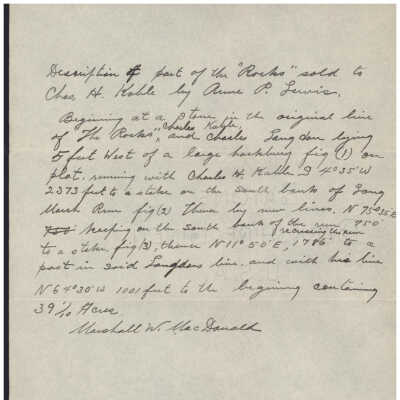 Description of part of the "Rocks" sold to
Chas. H. Kohle by Anne P. Lewis.
Begining at a Stone in the original line
of "The Rocks," Charles Kable, and Charles Langdon lying
5 feet West of a large hackbury fig (1) on
plat, running with Charles H. Kable S 4°35' W
2373 feet to a stake on the south bank of Long
Marsh Run fig (2) Thence by new lines, N 75°35' E
keeping on the south bank of the run 950'
recrossing the run
to a stake fig (3), thence N 11° 50' E, 1786' to a
post in said Langdons line, and with his line
N 64°30' W 1001 feet to the begining containing
39 1/10 Acres
Marshall W. MacDonald